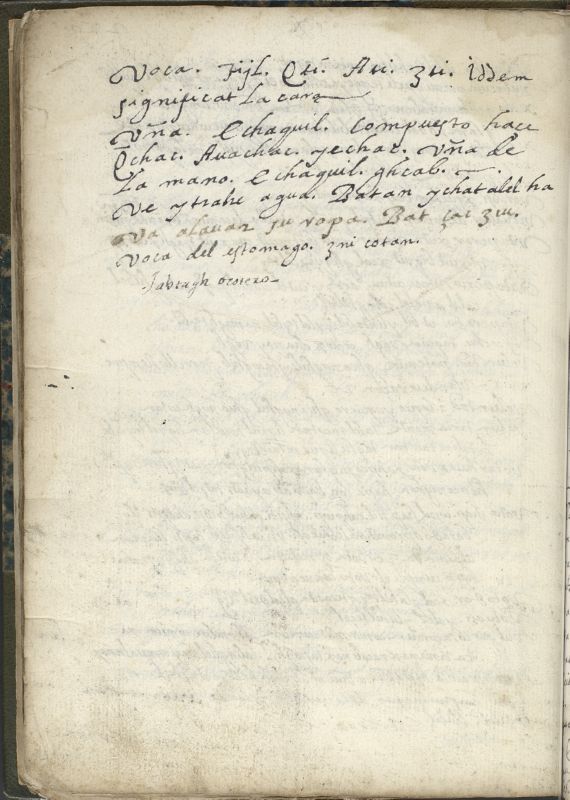 Voca. Fijl. Qti. Ati. 3ti. iddem
significat La cara
Vña. Echaquil. Compuesto hace
Qchac. Auachac. yechac. Vña de
La mano. Echaquil. ghcab.
Ve ytrahe agua. Batan ychat aleh ha
Va alauar su ropa. Bat çac 3iu.
Voca del estomago. 3ni cotan.
ocotero